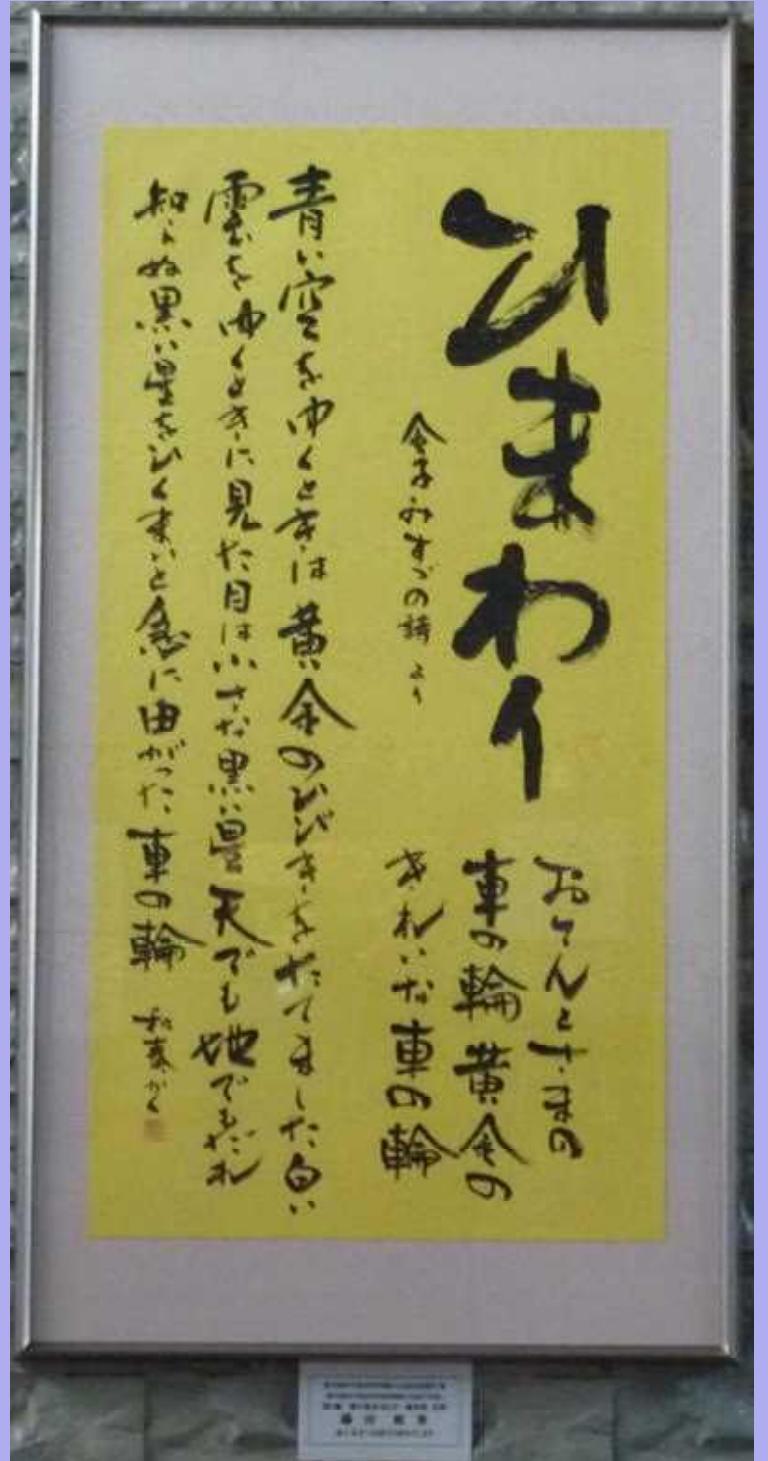 ひまわり
金子みすゞの詩より
おてんとさまの
車の輪黄金の
きれいな車の輪
青い空をゆくときは黄金のひびきをたてました白い
雲をゆくときに見た目は小さな黒い星天でも地でもだれ
知らぬ黒い星をひくまいと急に曲がった車の輪